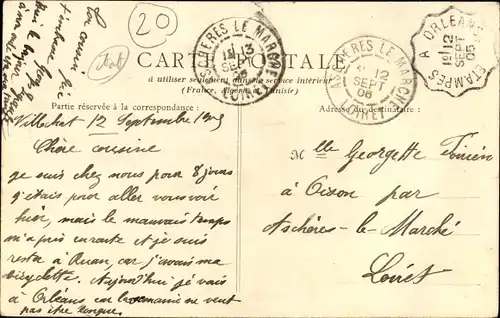 20
CARTE POSTALE
à utiliser seulement dans le service intérieur
(France, Algérie et Tunisie)
Partie réservée à la correspondance :
Adresse du destinataire :
ASCHÈRES LE MARCHÉ
13
SEPT
05
LOIRET
ASCHÈRES LE MARCHÉ
12
SEPT
05
LOIRET
ETAMPES A ORLEANS
1º 12
SEPT
05
12 Septembre 1905
Chère cousine
je suis chez nous pour 8 jours
j'étais pour aller vous voir
hier, mais le mauvais temps
m'a pris en route et je suis
resté à Ruan, car j'avais ma
bicyclette. Aujourd'hui je vais
à Orléans car la semaine ne veut
pas être longue.
Mlle Georgette
à Oizon par
Aschères-le-Marché
Loiret
Ton cousin qui
t'embrasse